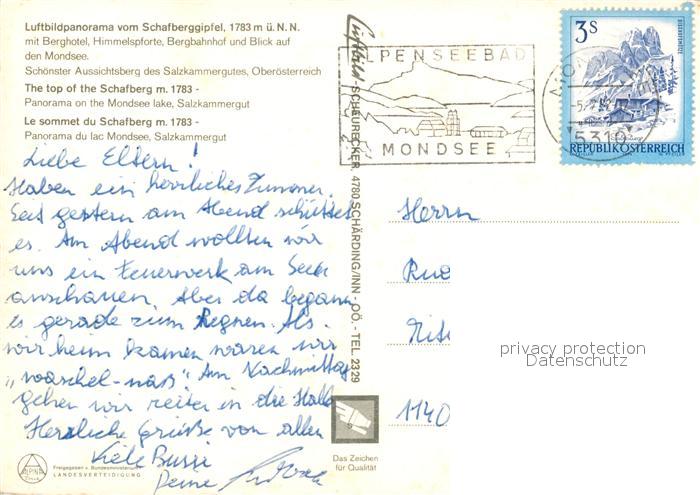 Luftbildpanorama vom Schafberggipfel, 1783 m ü. N. N.
mit Berghotel, Himmelspforte, Bergbahnhof und Blick auf
den Mondsee.
Schönster Aussichtsberg des Salzkammergutes, Oberösterreich
The top of the Schafberg m. 1783 -
Panorama on the Mondsee lake, Salzkammergut
Le sommet du Schafberg m. 1783 -
Panorama du lac Mondsee, Salzkammergut
Liebe Eltern!
Haben ein herrliches Zimmer.
Seit gestern am Abend schüttet
es. Am Abend wollten wir
uns ein Feuerwerk am See
anschauen. Aber da begann
es gerade zum Regnen. Als
wir heim kamen waren wir
"waschel-naß" Am Nachmittag
gehen wir reiten in die Halle
Herzliche Grüße von allen
Viele Bussi
Deine
ALPINA
Freigegeben v. Bundesministerium
LANDESVERTEIDIGUNG
Luftbild
-SCHEURECKER, 4780 SCHÄRDING/INN - OÖ. - TEL. 2329
Das Zeichen
für Qualität
ALPENSEEBAD
MONDSEE
5310
3 S
REPUBLIK ÖSTERREICH
Herrn
1140
privacy protection
Datenschutz